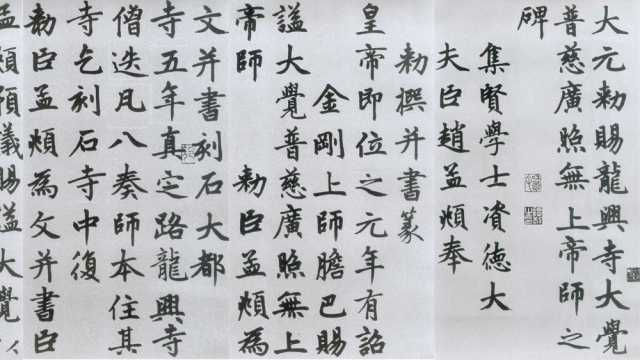 大元勑賜龍興寺大覺
普慈廣照無上帝師之
碑
集賢學士資德大
夫臣趙孟頫奉
勑撰并書篆
皇帝即位之元年有詔
金剛上師膽巴賜
謚大覺普慈廣照無上
帝師 勑臣孟頫為
文并書刻石大都
寺五年真定路龍興寺
僧迭凡八奏師本住其
寺乞刻石寺中復
勑臣孟頫為文并書臣
孟頫預議賜謚大覺